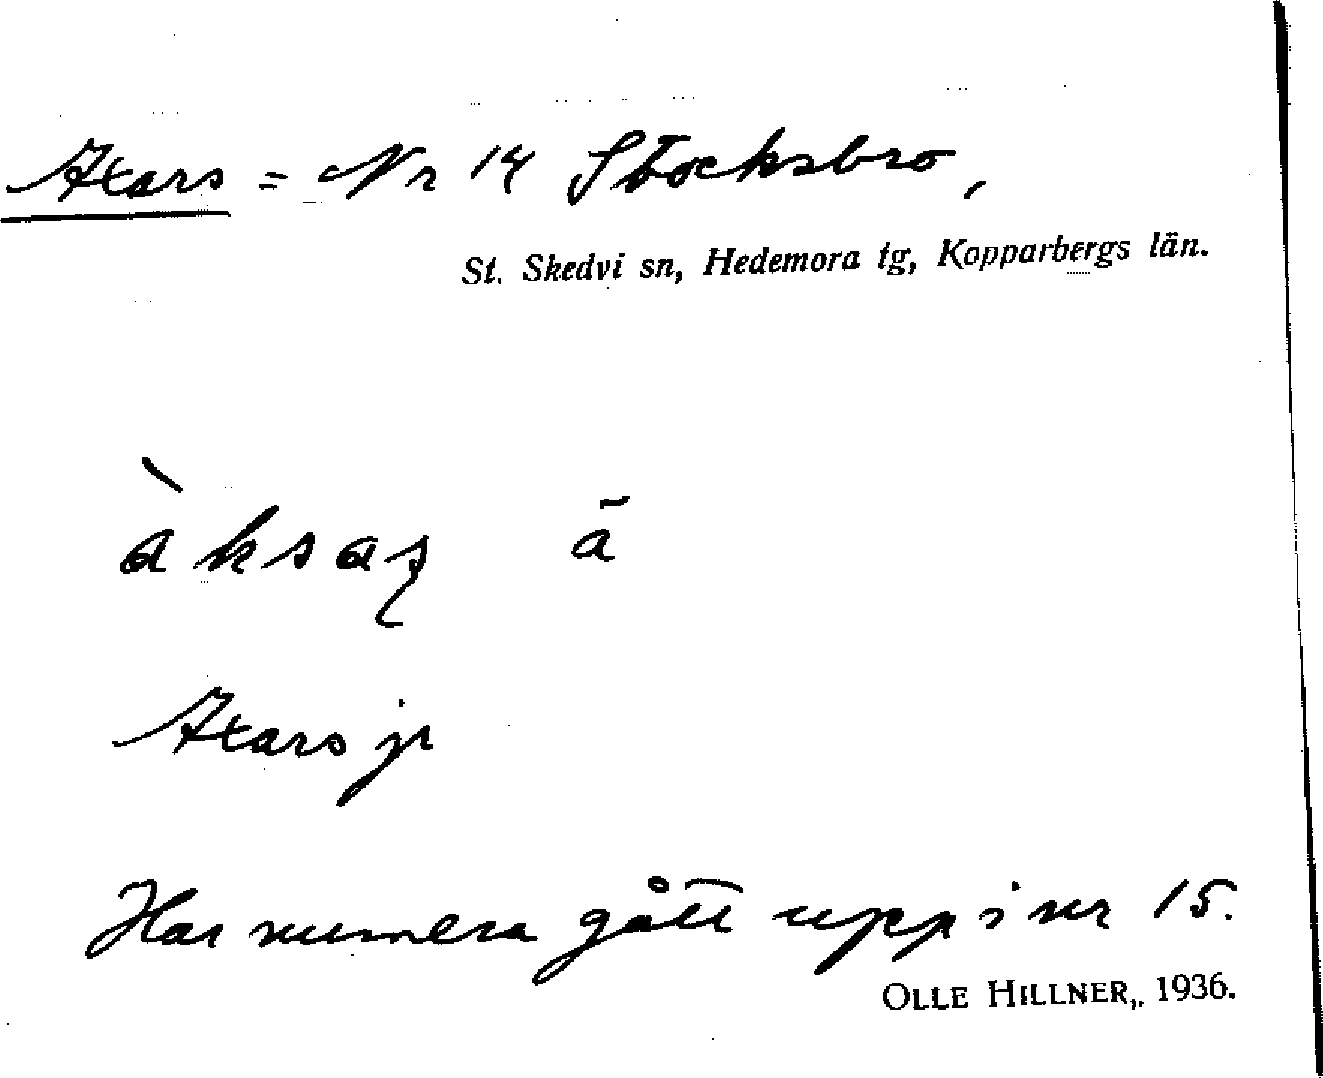 Axars = Nr 14 Stocksbro,
St. Skedvi sn, Hedemora tg, Kopparbergs län.
àksaʂ ā
Axars jr
Har numera gått upp i nr 15.
OLLE HILLNER,. 1936.